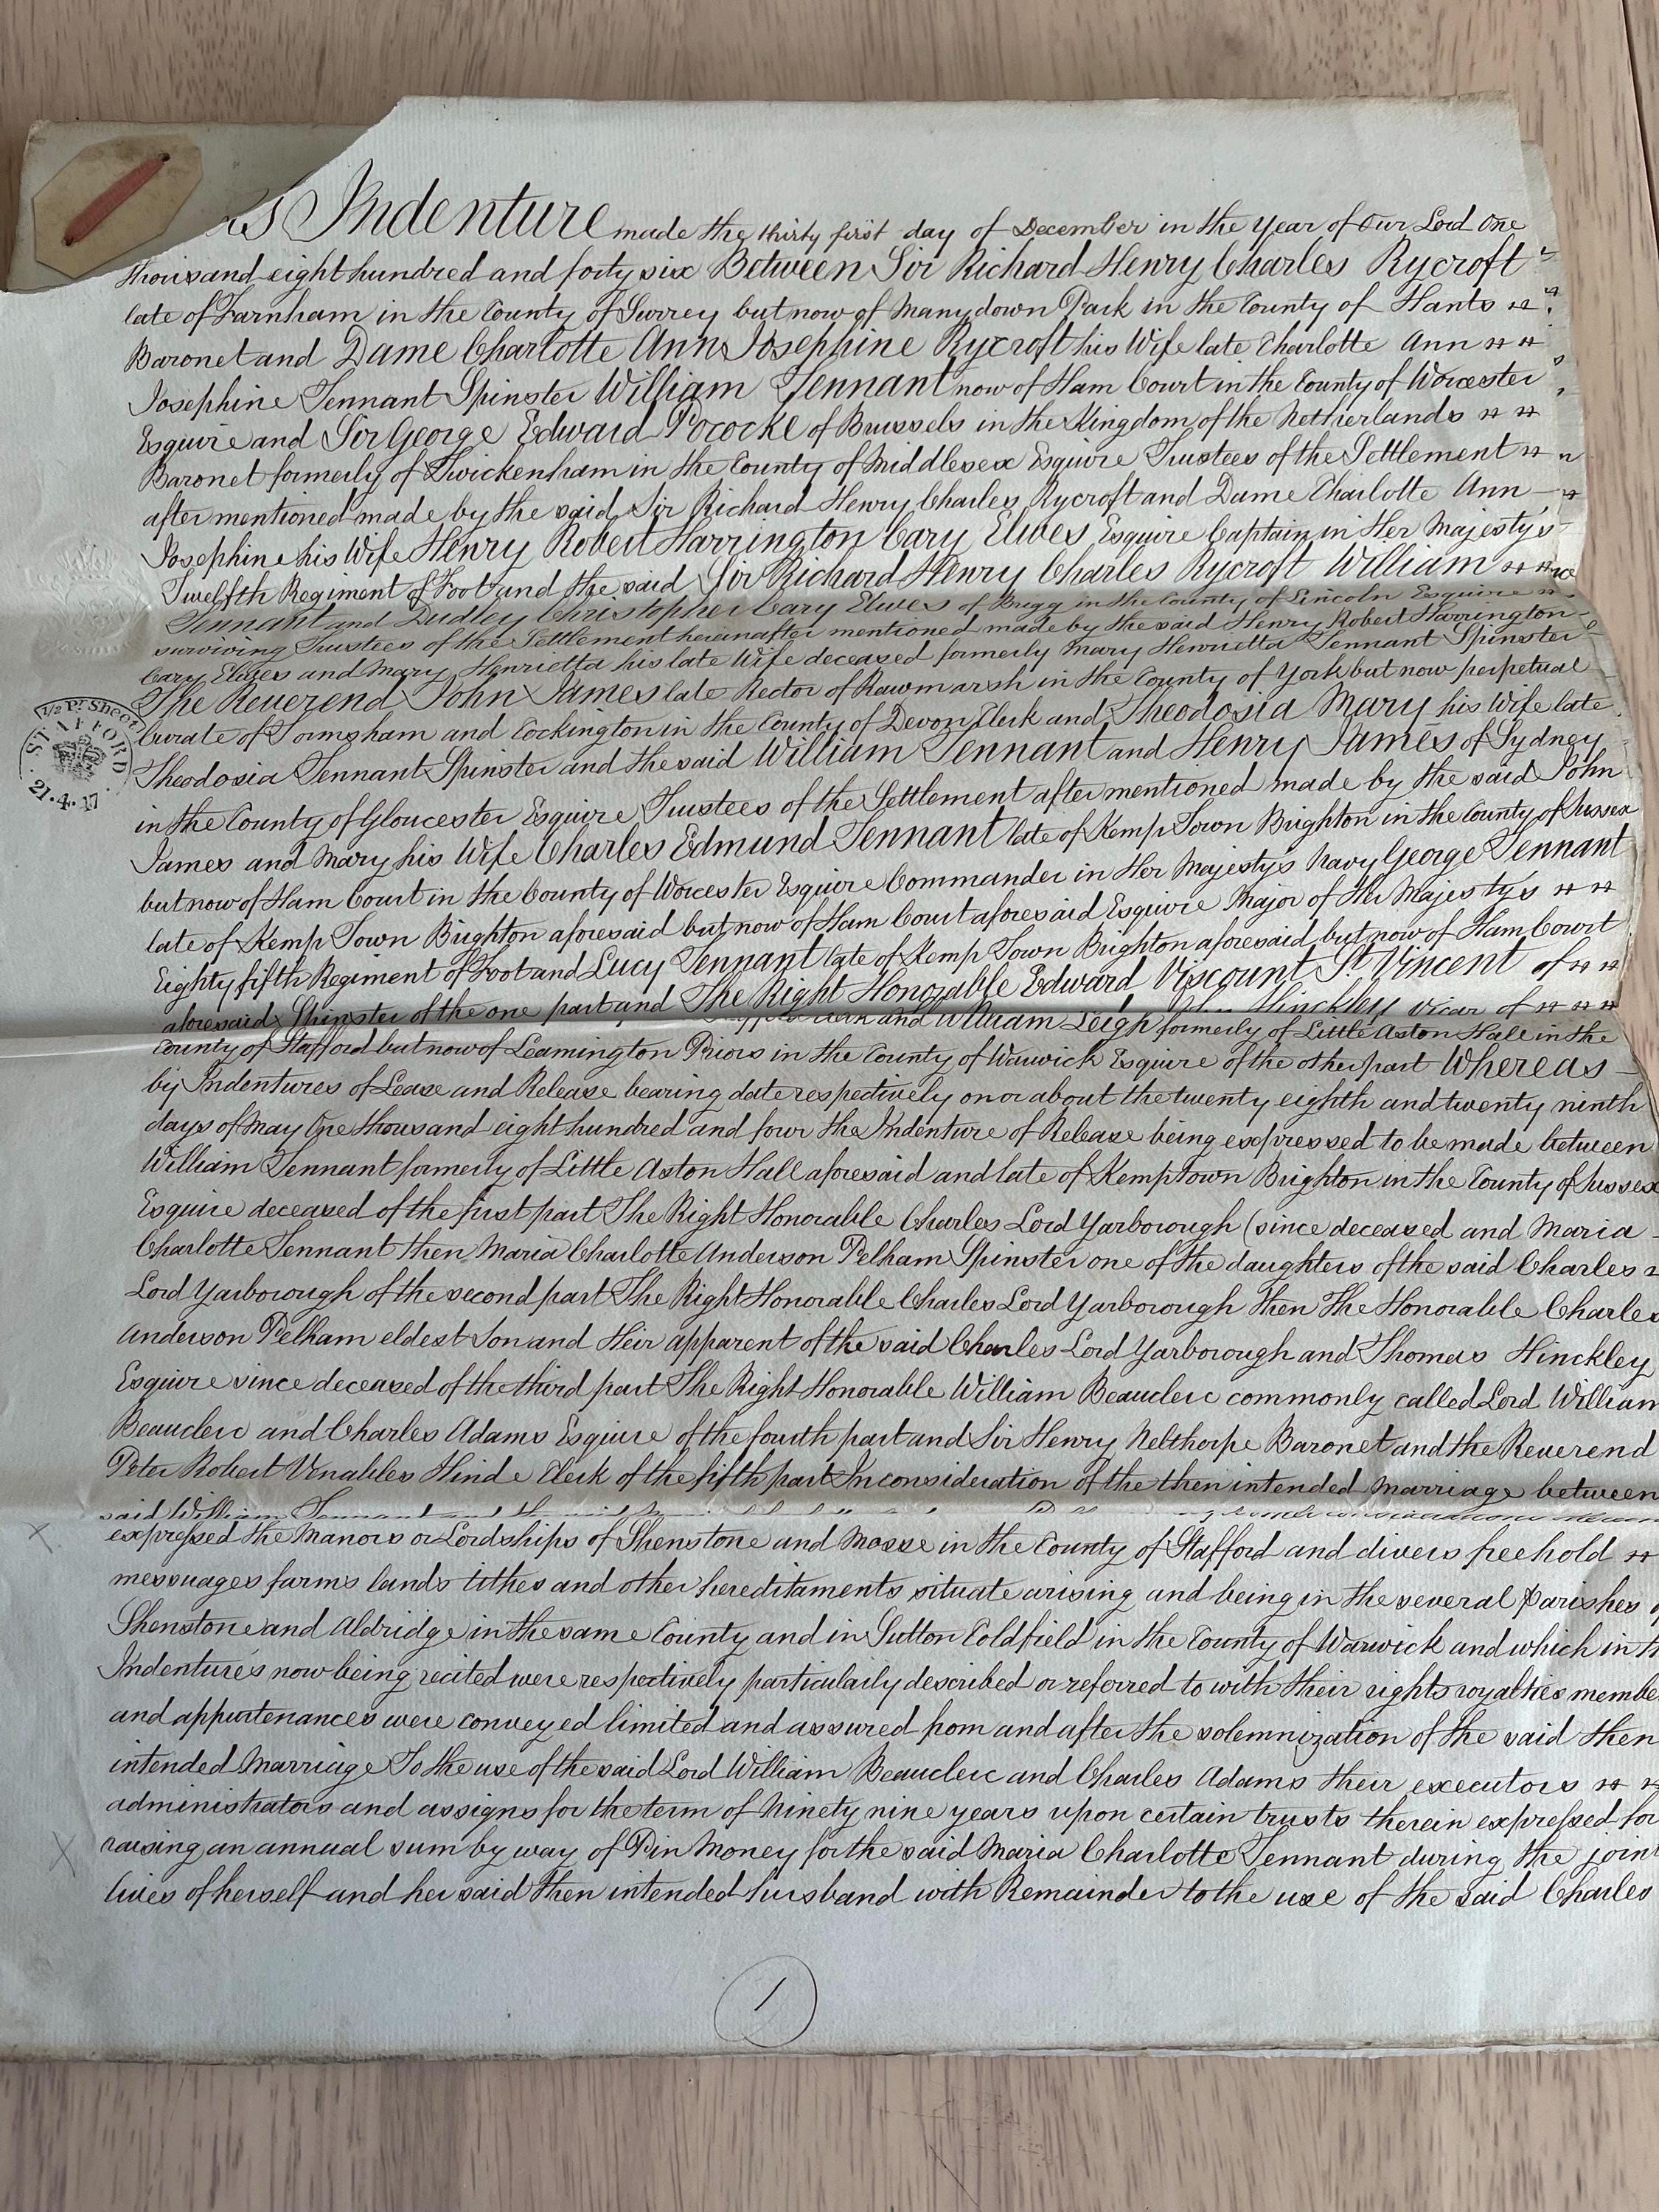 Indenture made the thirty first day of December in the Year of Our Lord One
thousand eight hundred and forty six Between Sir Richard Henry Charles Rycroft
late of Farnham in the County of Surrey but now of Manydown Park in the County of Hants
Baronet and Dame Charlotte Ann Josephine Rycroft his Wife late Charlotte Ann
Josephine Tennant Spinster William Tennant now of Ham Court in the County of Worcester
Esquire and Sir George Edward Pococke of Brussels in the Kingdom of the Netherlands
Baronet formerly of Twickenham in the County of Middlesex Esquire Trustees of the Settlement
after mentioned made by the said Sir Richard Henry Charles Rycroft and Dame Charlotte Ann
Josephine his Wife Henry Robert Harrington Cary Elwes Esquire Captain in Her Majesty's
Twelfth Regiment of Foot and the said Sir Richard Henry Charles Rycroft William
Tennant and Dudley Christopher Cary Elwes of Brigg in the County of Lincoln Esquire
surviving Trustees of the Settlement hereinafter mentioned made by the said Henry Robert Harrington
Cary Elwes and Mary Henrietta his late Wife deceased formerly Mary Henrietta Tennant Spinster
The Reverend John James late Rector of Rawmarsh in the County of York but now perpetual
Curate of Tormoham and Cockington in the County of Devon Clerk and Theodosia Mary his Wife late
Theodosia Tennant Spinster and the said William Tennant and Henry James of Sydney
in the County of Gloucester Esquire Trustees of the Settlement after mentioned made by the said John
James and Mary his Wife Charles Edmund Tennant late of Kemp Town Brighton in the County of Sussex
but now of Ham Court in the County of Worcester Esquire Commander in Her Majesty's Navy George Tennant
late of Kemp Town Brighton aforesaid but now of Ham Court aforesaid Esquire Major of Her Majesty's
Eighty fifth Regiment of Foot and Lucy Tennant late of Kemp Town Brighton aforesaid but now of Ham Court
aforesaid Spinster of the one part and The Right Honorable Edward Viscount St. Vincent of
Hinckley Vicar of
Clerk and William Leigh formerly of Little Aston Hall in the
County of Stafford but now of Leamington Priors in the County of Warwick Esquire of the other part Whereas
by Indentures of Lease and Release bearing date respectively on or about the twenty eighth and twenty ninth
days of May One thousand eight hundred and four the Indenture of Release being expressed to be made between
William Tennant formerly of Little Aston Hall aforesaid and late of Kemptown Brighton in the County of Sussex
Esquire deceased of the first part The Right Honorable Charles Lord Yarborough (since deceased and Maria
Charlotte Tennant then Maria Charlotte Anderson Pelham Spinster one of the daughters of the said Charles
Lord Yarborough of the second part The Right Honorable Charles Lord Yarborough then The Honorable Charles
Anderson Pelham eldest Son and Heir apparent of the said Charles Lord Yarborough and Thomas Hinckley
Esquire since deceased of the third part The Right Honorable William Beauclerc commonly called Lord William
Beauclerc and Charles Adams Esquire of the fourth part and Sir Henry Nelthorpe Baronet and the Reverend
Peter Robert Venables Hinde Clerk of the fifth part In consideration of the then intended Marriage between
said William Tennant and the said
expressed the Manors or Lordships of Shenstone and Mosse in the County of Stafford and divers freehold
messuages farms lands tithes and other hereditaments situate arising and being in the several Parishes
Shenstone and Aldridge in the same County and in Sutton Coldfield in the County of Warwick and which in
Indentures now being recited were respectively particularly described or referred to with their rights royalties
and appurtenances were conveyed limited and assured from and after the solemnization of the said then
intended Marriage To the use of the said Lord William Beauclerc and Charles Adams their executors
administrators and assigns for the term of Ninety nine years upon certain trusts therein expressed for
raising an annual sum by way of Pin Money for the said Maria Charlotte Tennant during the joint
lives of herself and her said then intended husband with Remainder to the use of the said Charles
1
½ Pr. Sheet
STAFFORD
21.4.17